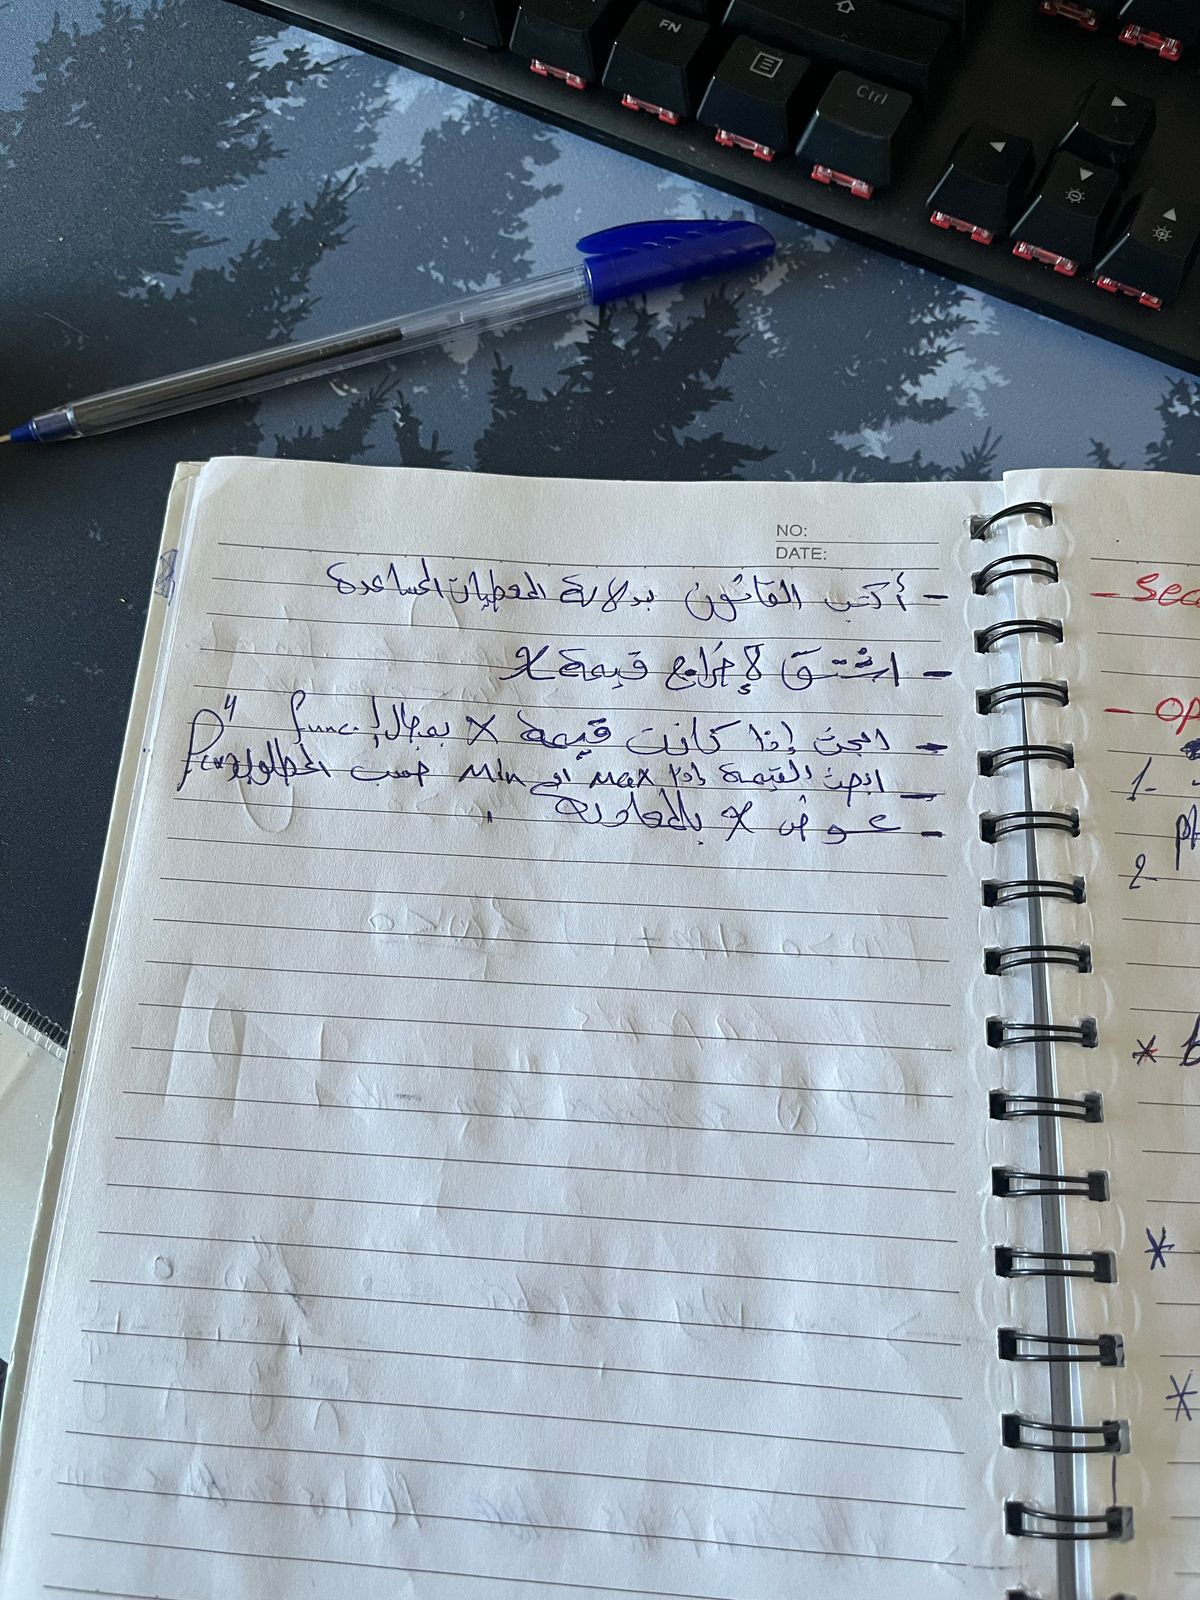 FN
Ctrl
NO:
DATE:
- أكتب القانون بدلالة المعطيات المساعدة
- اشتق لإخراج قيمة x
- ابحث إذا كانت قيمة x بمجال func.
- ابحث القيمة إذا max او Min حسب المطلوب
- عوض x بالمعادلة
- Sec
- op
1-
2-
*
*
*